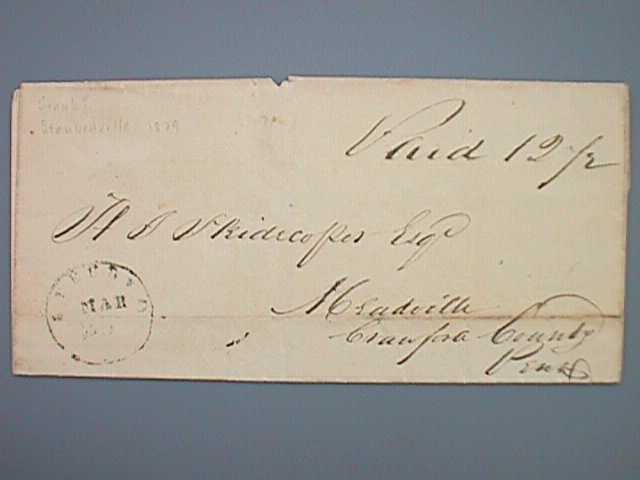 Steubenville 1839
Paid 12 1/2
Skidecoper Esqr
MAR
Meadville
Crawford County
Penn